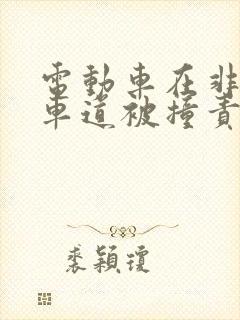 電動車在非
車道被撞責
裘穎瓊